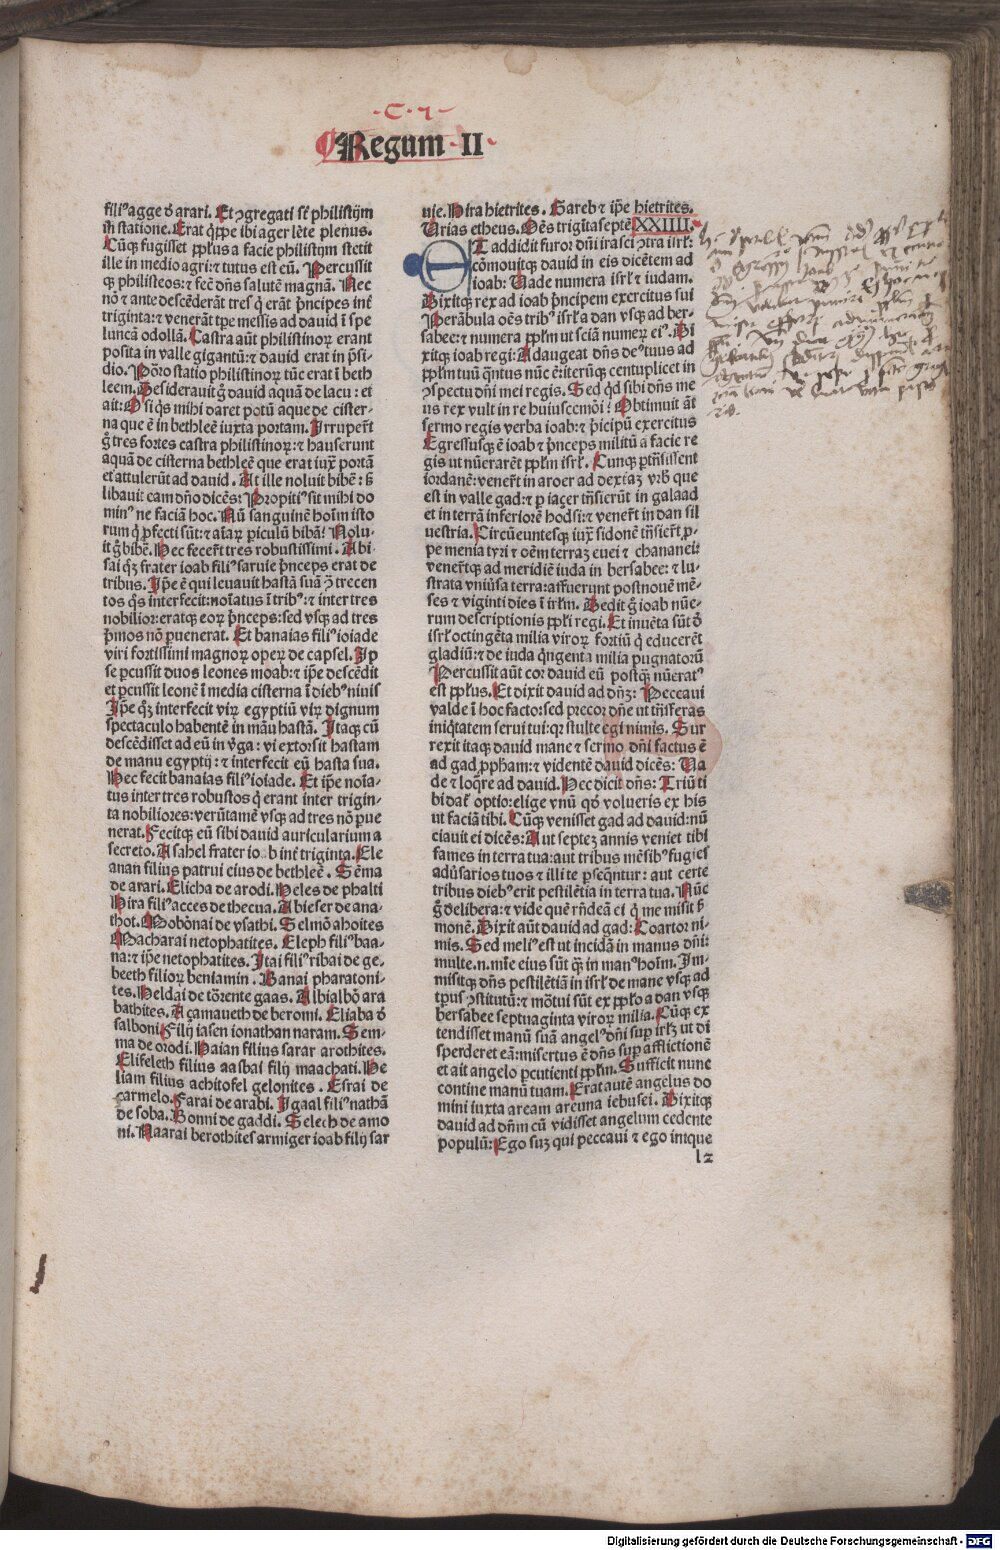 ·C·7·
Regum II
filiꝰ agge d̕ arari. Et ꝯgregati sūt philistijm
in statione. Erat q̄ppe ibi ager lēte plenus.
Cūqꝫ fugisset ppl̕us a facie philistijm stetit
ille in medio agri: ⁊ tutus est eū. Percussit
qꝫ philisteos: ⁊ fec̄ dn̄s salutē magnā. Nec
nō ⁊ ante descēderāt tres q̇ erāt pͥncipes int̄
triginta: ⁊ venerāt tꝑe messis ad dauid ī spe
luncā odollā. Castra aūt philistinoꝝ erant
posita in valle gigantū: ⁊ dauid erat in p̄si-
dio. Porro statio philistinoꝝ tūc erat ī beth
leem. Desiderauit g̊ dauid aquā de lacu: et
ait: O si q̇s mihi daret potū aque de cister-
na que ē in bethleē iuxta portam. Irruper̄t
g̊ tres fortes castra philistinoꝝ: ⁊ hauserunt
aquā de cisterna bethleē que erat iuxͣ portā
et attulerūt ad dauid. At ille noluit bibē: sꝫ
libauit eam dn̄o dicēs: Propitiꝰ sit mihi do
minꝰ ne faciā hoc. Nū sanguinē hoīm isto
rum q̇ ꝓfecti sūt: ⁊ aīaꝝ ꝑiculū bibā? Nolu-
it g̊ bibē. Hec fecer̄t tres robustissimi. Abi-
sai qꝫ frater ioab filiꝰ saruie pͥnceps erat de
tribus. Ip̄e ē qui leuauit hastā suā ꝯ̄ trecen
tos q̊s interfecit: noīatus ī tribꝰ: ⁊ inter tres
nobilior: eratqꝫ eoꝝ pͥnceps: sed vsqꝫ ad tres
pͥmos nō ꝑuenerat. Et banaias filiꝰ ioiade
viri fortissimi magnoꝝ opeꝝ de capsel. Ip
se ꝑcussit duos leones moab: ⁊ ip̄e descēdit
et ꝑcussit leonē ī media cisterna ī diebꝰ niuis
Ip̄e qꝫ interfecit viꝝ egyptiū viꝝ dignum
spectaculo habentē in māu hastā. Itaqꝫ cū
descēdisset ad eū in v̄ga: vi extorsit hastam
de manu egyptij: ⁊ interfecit eū hasta sua.
Hec fecit banaias filiꝰ ioiade. Et ip̄e noīa-
tus inter tres robustos q̇ erant inter trigin-
ta nobiliores: verūtamē vsqꝫ ad tres nō ꝑue
nerat. Fecitqꝫ eū sibi dauid auricularium a
secreto. Asahel frater ioab int̄ triginta. Ele
anan filius patrui eius de bethleē. Semma
de arari. Elicha de arodi. Heles de phalti
Hira filiꝰ acces de thecua. Abieser de ana-
thot. Mobōnai de vsathi. Selmō ahoites
Macharai netophatites. Eleph filiꝰ baa-
na: ⁊ ip̄e netophatites. Itai filiꝰ ribai de ge-
beeth filioꝝ beniamin. Banai pharatoni-
tes. Heldai de torrente gaas. Albialbō ara
bathites. Açamaueth de beromi. Eliaba d̕
salboni. Filij iasen ionathan naram. Sem-
ma de orodi. Haian filius sarar arothites.
Elifeleth filius aasbai filij maachati. He
liam filius achitofel gelonites. Esrai de
carmelo. Farai de arabi. Igaal filiꝰ nathā
de soba. Bonni de gaddi. Selech de amo
ni. Naarai berothites armiger ioab filij sar
uie. Hira hietrites. Gareb ⁊ ip̄e hietrites.
Urias etheus. Oēs trigīta septē. XXIIII.
ET addidit furor dn̄i irasci ꝯtra isrl̕:
cōmouitqꝫ dauid in eis dicētem ad
ioab: Uade numera isrl̕ ⁊ iudam.
Dixitqꝫ rex ad ioab pͥncipem exercitus sui
Perābula oēs tribꝰ isrl̕ a dan vsqꝫ ad ber-
sabee: ⁊ numera ppl̕m ut sciā numeꝝ eiꝰ. Di
xitqꝫ ioab regi: Adaugeat dn̄s deꝰ tuus ad
ppl̕m tuū q̄ntus nūc ē: iterūqꝫ centuplicet in
ꝯspectu dn̄i mei regis. Sed qd̕ sibi dn̄s me
us rex vult in re huiuscemōi? Obtinuit aūt
sermo regis verba ioab: ⁊ pͥncipū exercitus
Egressusqꝫ ē ioab ⁊ pͥnceps militū a facie re
gis ut nūerarēt ppl̕m isrl̕. Cunqꝫ ꝑtn̄sissent
iordanē: vener̄t in aroer ad dextaꝫ vrb̄ que
est in valle gad: ⁊ ꝑ iaçer tn̄sierūt in galaad
et in terrā inferiorē hodsi: ⁊ vener̄t in dan sil
uestria. Circūeuntesqꝫ iuxͣ sidonē tn̄sier̄t ꝓ-
pe menia tyri ⁊ oēm terraꝫ euei ⁊ chananei:
vener̄tqꝫ ad meridiē iuda in bersabee: ⁊ lu-
strata vniūsa terra: affuerunt post nouē mē-
ses ⁊ viginti dies ī irl̕m. Dedit g̊ ioab nūe-
rum descriptionis ppl̕i regi. Et inuēta sūt d̕
isrl̕ octingēta milia viroꝝ fortiū q̇ educerēt
gladiū: ⁊ de iuda q̇ngenta milia pugnatorū
Percussit aūt cor dauid eū postqꝫ nūeratꝰ
est ppl̕us. Et dixit dauid ad dn̄ꝫ: Peccaui
valde ī hoc facto: sed precor dn̄e ut tn̄sferas
iniq̇tatem serui tui: qꝛ stulte egi nimis. Sur
rexit itaqꝫ dauid mane ⁊ sermo dn̄i factus ē
ad gad ꝓph̄am: ⁊ videntē dauid dicēs: Ua
de ⁊ loq̄re ad dauid. Hec dicit dn̄s: Triū ti
bi dat̄ optio: elige vnū qd̕ volueris ex his
ut faciā tibi. Cūqꝫ venisset gad ad dauid: nū
ciauit ei dicēs: Aut septeꝫ annis veniet tibi
fames in terra tua: aut tribus mēsibꝰ fugies
ad̄usarios tuos ⁊ illi te ꝑseq̄ntur: aut certe
tribus diebꝰ erit pestilētia in terra tua. Nūc
g̊ delibera: ⁊ vide quē rn̄deā ei q̇ me misit ẜ
monē. Dixit aūt dauid ad gad: Coartor ni-
mis. Sed meliꝰ est ut incidā in manus dn̄i:
multe .n. mīe eius sūt qꝫ in manꝰ hoīm. Im-
misitqꝫ dn̄s pestilētiā in isrl̕ de mane vsqꝫ ad
tꝑus ꝯstitutū: ⁊ mōtui sūt ex ppl̕o a dan vsqꝫ
bersabee septuaginta viroꝝ milia. Cūqꝫ ex
tendisset manū suā angelꝰ dn̄i suꝑ irl̕ꝫ ut di
sperderet eā: misertus ē dn̄s suꝑ afflictionē
et ait angelo ꝑcutienti ppl̕m. Sufficit nunc
contine manū tuam. Erat autē angelus do
mini iuxta aream areuna iebusei. Dixitqꝫ
dauid ad dn̄m cū vidisset angelum cedente
populū: Ego suꝫ qui peccaui ⁊ ego inique
l2
Digitalisierung gefördert durch die Deutsche Forschungsgemeinschaft - DFG